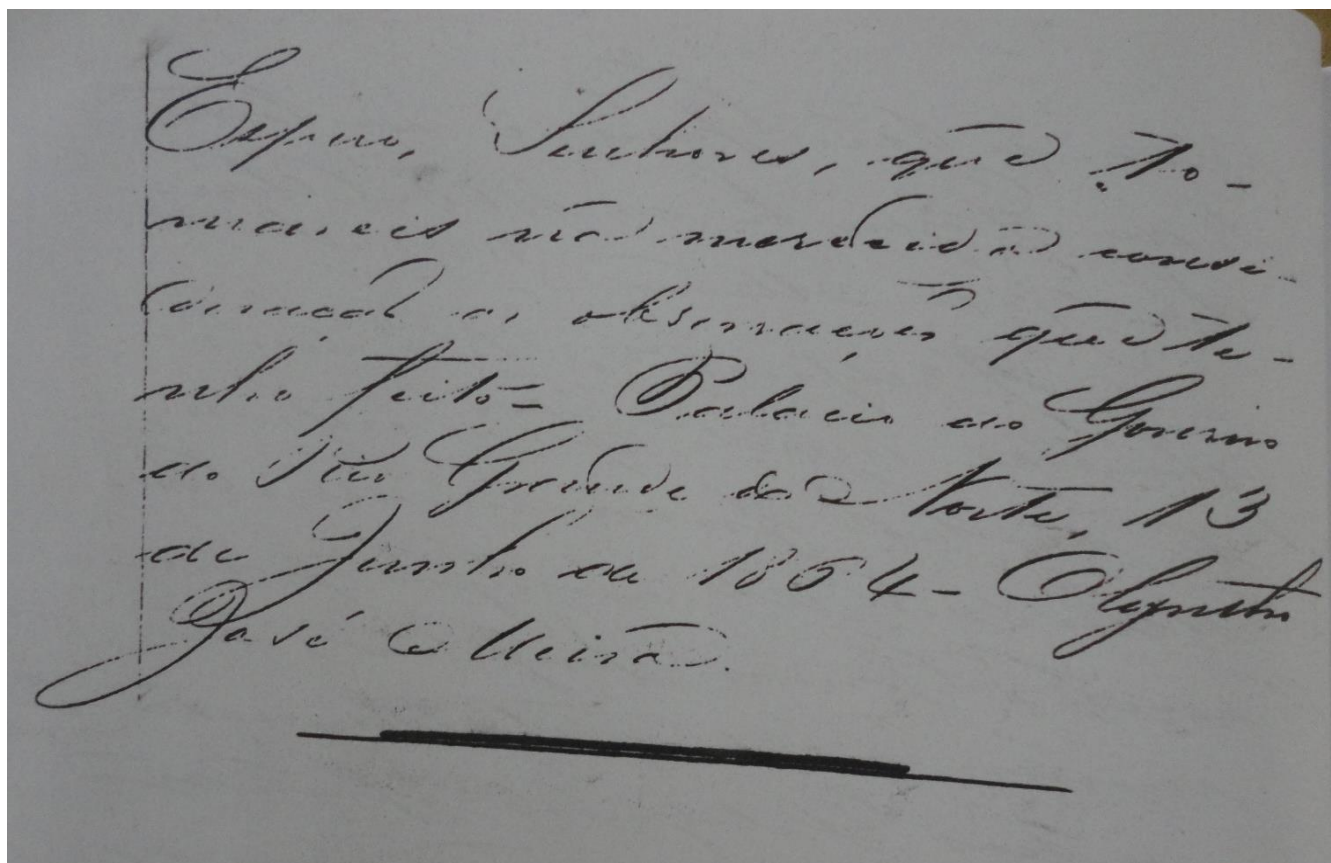 Espero, Senhores, que to-
mareis na merecida consi-
deração as observações que te-
nho feito = Palacio do Governo
do Rio Grande do Norte, 13
de Junho de 1864 - Olyntho
José Meira.